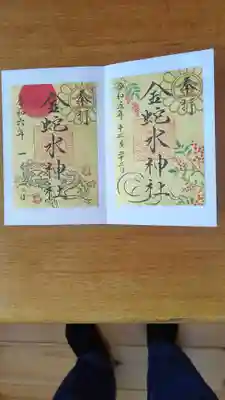 奉拝
金蛇水神社
令和五年十二月
奉拝
金蛇水神社
令和六年一